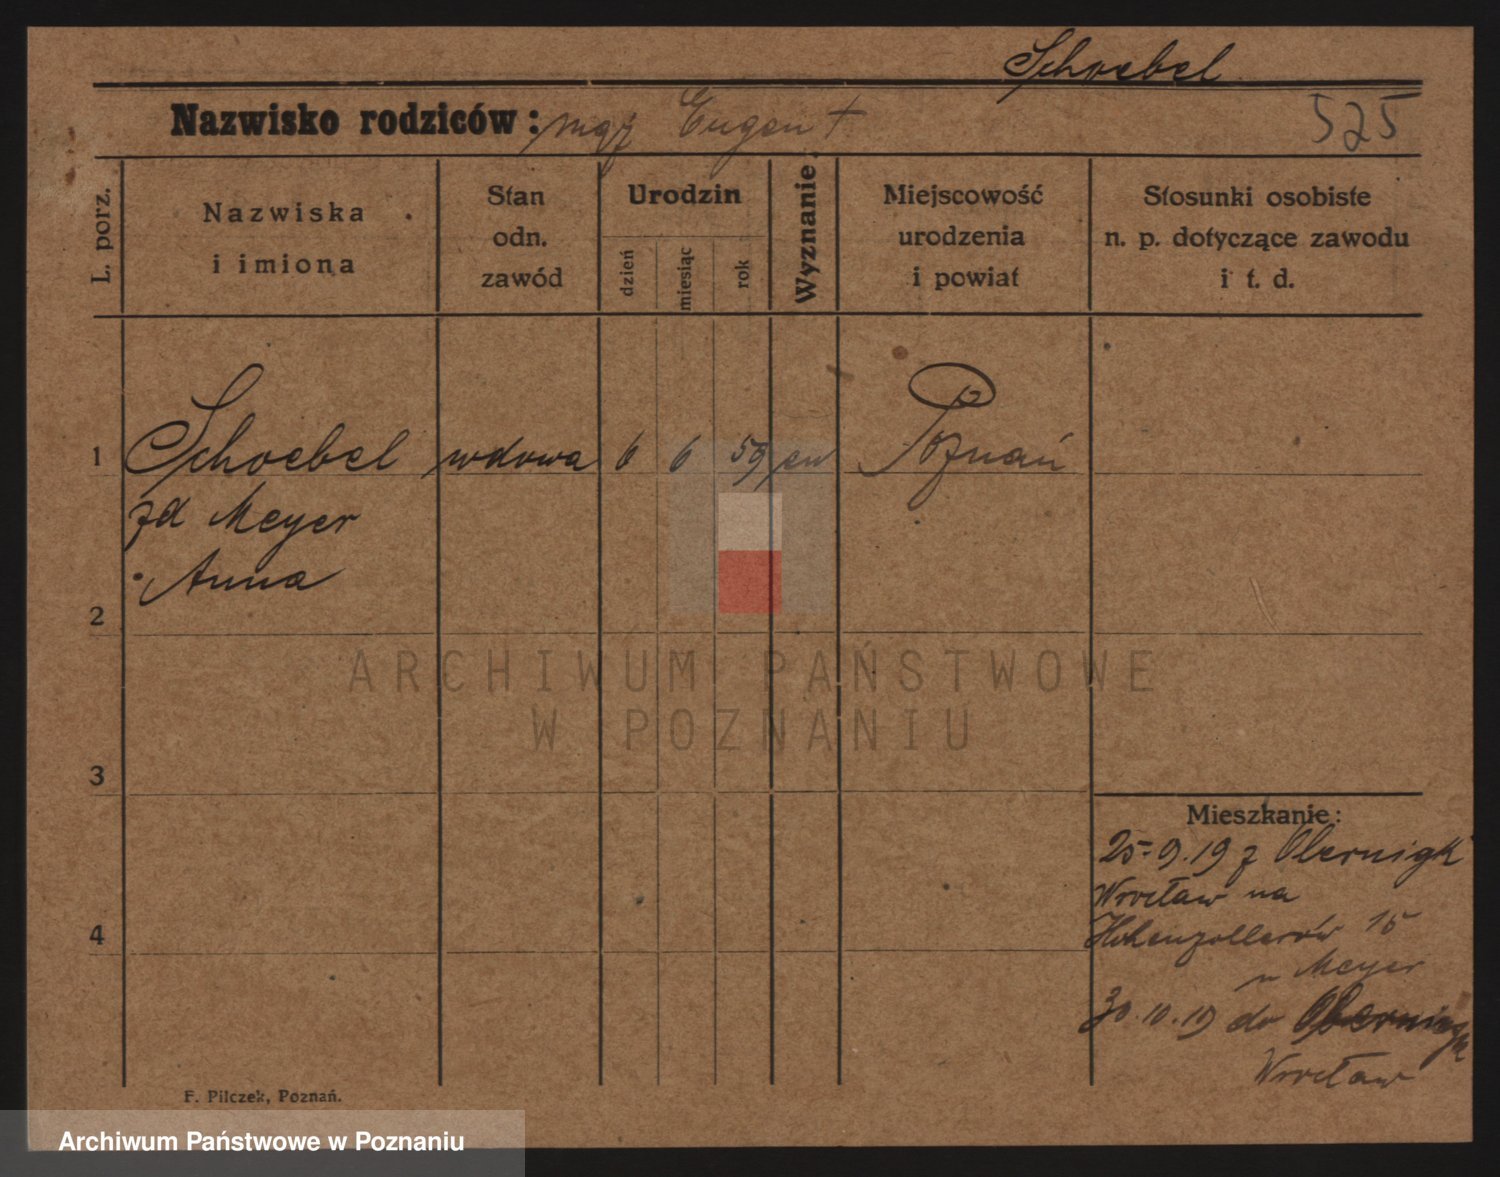 Schoebel
Nazwisko rodziców: mąż Eugen †
525
L. porz.
Nazwiska
i imiona
Stan
odn.
zawód
Urodzin
dzień
miesiąc
rok
Wyznanie
Miejscowość
urodzenia
i powiat
Stosunki osobiste
n. p. dotyczące zawodu
i t. d.
1
Schoebel wdowa 6 6 59 ew Poznań
zd Meyer
Anna
2
3
4
ARCHIWUM PAŃSTWOWE
W POZNANIU
Mieszkanie:
25-9.19 z Obernigk
Wrocław na
Hohenzollerów 15
u Meyer
30.10.19 do Obernigk
Wrocław
F. Pilczek, Poznań.
Archiwum Państwowe w Poznaniu